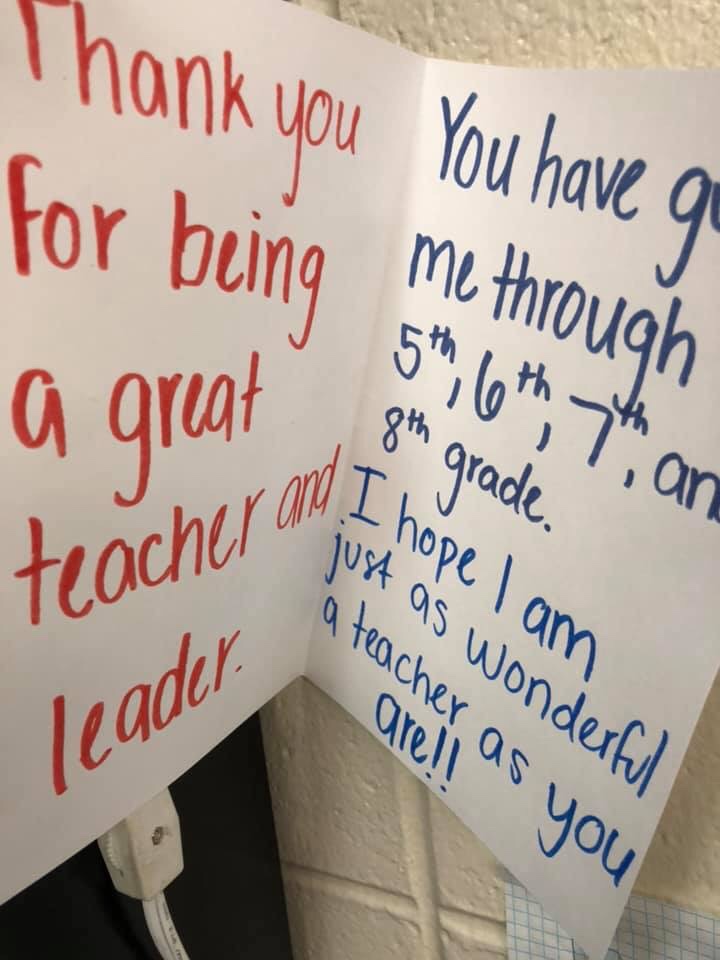 Thank you
for being
a great
teacher and
leader.
You have
me through
5th, 6th, 7th, an
8th grade.
I hope I am
just as wonderful
a teacher as you
are!!